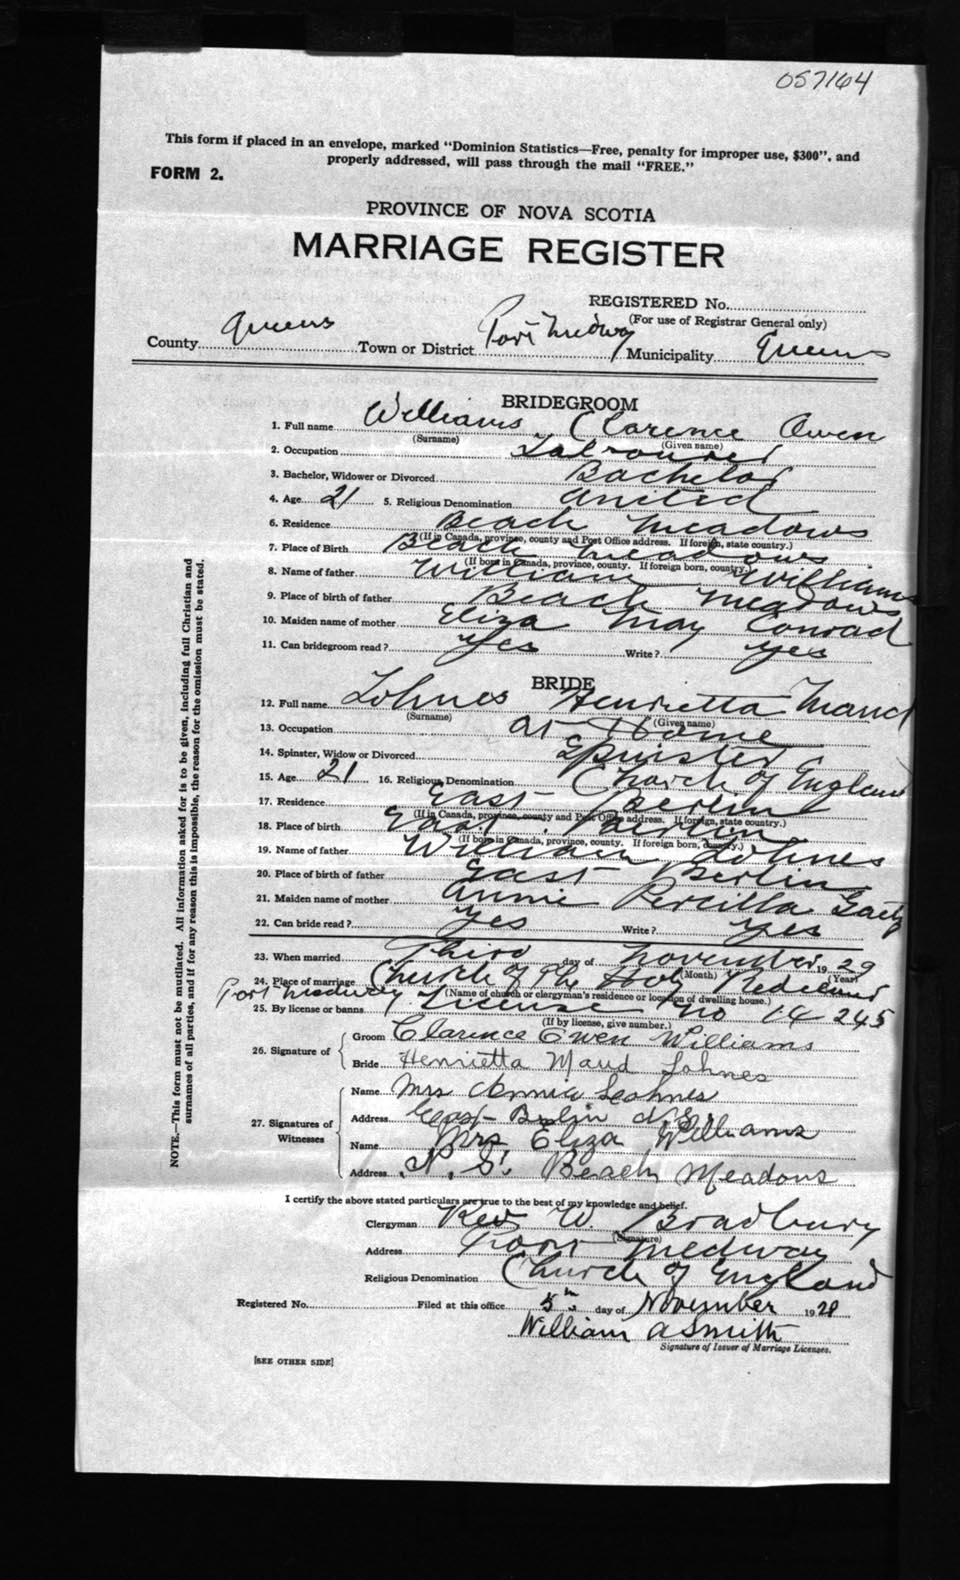 057164
This form if placed in an envelope, marked "Dominion Statistics—Free, penalty for improper use, $300", and
properly addressed, will pass through the mail "FREE."
FORM 2.
PROVINCE OF NOVA SCOTIA
MARRIAGE REGISTER
REGISTERED No.
(For use of Registrar General only)
County Queens Town or District Port Medway Municipality Queens
BRIDEGROOM
1. Full name Williams Clarence Owen
(Surname) (Given name)
2. Occupation Labourer
3. Bachelor, Widower or Divorced Bachelor
4. Age 21 5. Religious Denomination United
6. Residence Beach Meadows
(If in Canada, province, county and Post Office address. If foreign, state country.)
7. Place of Birth Beach Meadows
(If born in Canada, province, county. If foreign born, country.)
8. Name of father William Williams
9. Place of birth of father Beach Meadows
10. Maiden name of mother Eliza May Conrad
11. Can bridegroom read? Yes Write? Yes
BRIDE
12. Full name Lohnes Henrietta Maud
(Surname) (Given name)
13. Occupation at Home
14. Spinster, Widow or Divorced Spinster
15. Age 21 16. Religious Denomination Church of England
17. Residence East Berlin
(If in Canada, province, county and Post Office address. If foreign, state country.)
18. Place of birth East Berlin
(If born in Canada, province, county. If foreign born, country.)
19. Name of father William Lohnes
20. Place of birth of father East Berlin
21. Maiden name of mother Annie Percilla
22. Can bride read? Yes Write? Yes
23. When married Third day of November 1929
(Month) (Year)
24. Place of marriage Church of The Holy Redeemer
Port Medway (Name of church or clergyman's residence or location of dwelling house.)
25. By license or banns License no 14245
(If by license, give number.)
26. Signature of
Groom Clarence Owen Williams
Bride Henrietta Maud Lohnes
27. Signatures of Witnesses
Name Mrs Annie Lohnes
Address East Berlin N.S.
Name Mrs Eliza Williams
Address N. S. Beach Meadows
I certify the above stated particulars are true to the best of my knowledge and belief.
Clergyman Rev W. Bradbury
(Signature)
Address Port Medway
Religious Denomination Church of England
Registered No. Filed at this office 5th day of November 1929
William A Smith
Signature of Issuer of Marriage Licenses.
[SEE OTHER SIDE]
NOTE.—This form must not be mutilated. All information asked for is to be given, including full Christian and
surnames of all parties, and if for any reason this is impossible, the reason for the omission must be stated.